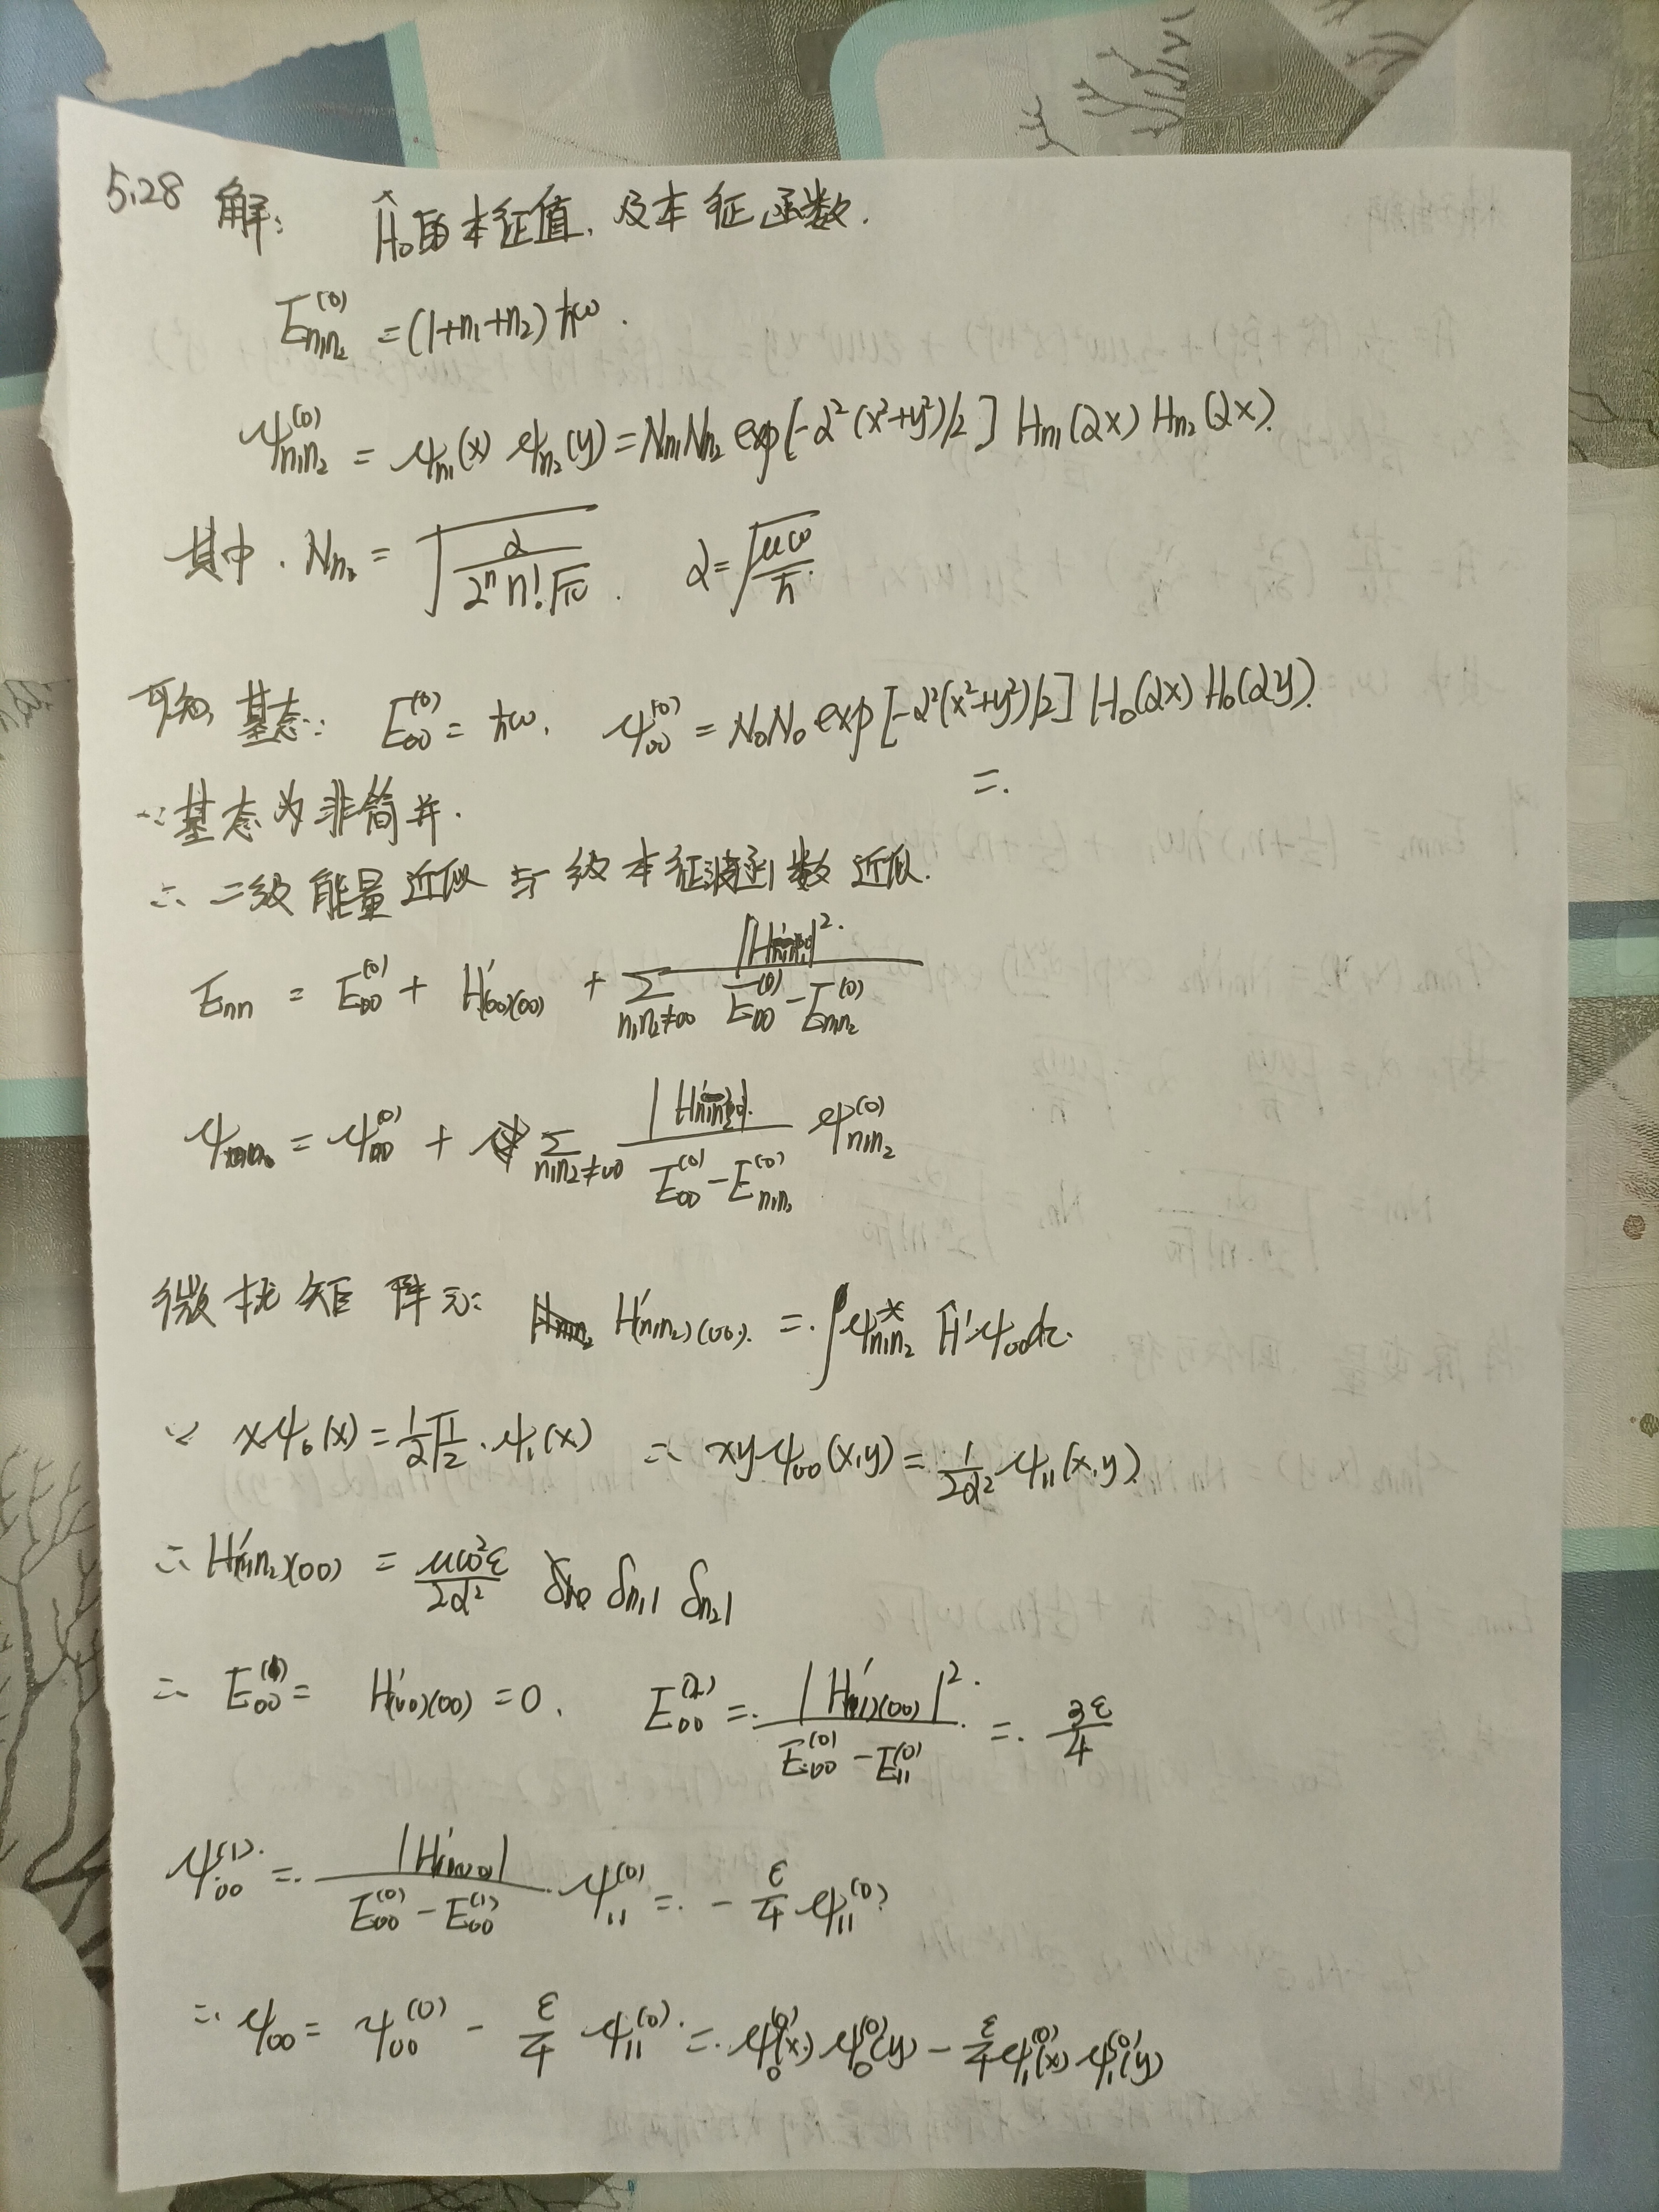 5.28 解: Ĥ₀的本征值, 及本征函数.
E_{n₁n₂}^{(0)} = (1+n₁+n₂) ħω.
ψ_{n₁n₂}^{(0)} = ψ_{n₁}(x) ψ_{n₂}(y) = N_{n₁}N_{n₂} exp[-α²(x²+y²)/2] H_{n₁}(αx) H_{n₂}(αx).
其中. N_{n₂} = √(α/(2ⁿ n! √π)). α = √(μω/ħ)
可知, 基态: E_{00}^{(0)} = ħω. ψ_{00}^{(0)} = N₀N₀ exp[-α²(x²+y²)/2] H₀(αx) H₀(αy).
=.
∵ 基态为非简并.
∴ 二级能量近似与一级本征波函数近似.
E_{nn} = E_{00}^{(0)} + H'_{(00)(00)} + Σ_{n₁n₂≠00} |H'|²/(E_{00}^{(0)} - E_{n₁n₂}^{(0)})
ψ = ψ_{00}^{(0)} + Σ_{n₁n₂≠00} |H'|/(E_{00}^{(0)} - E_{n₁n₂}^{(0)}) ψ_{n₁n₂}^{(0)}
微扰矩阵元: H'_{(n₁n₂)(00)} = ∫ψ*_{n₁n₂} Ĥ' ψ_{00} dτ.
∵ xψ₀(x) = (1/α)√(1/2) · ψ₁(x) ∴ xyψ_{00}(x,y) = (1/(2α²)) ψ_{11}(x,y).
∴ H'_{(n₁n₂)(00)} = (μω²ε/(2α²)) δ_{n₁1} δ_{n₂1}
∴ E_{00}^{(1)} = H'_{(00)(00)} = 0. E_{00}^{(2)} = |H'_{(11)(00)}|²/(E_{00}^{(0)} - E_{11}^{(0)}) = 3ε/4
ψ_{00}^{(1)} = |H'_{(11)(00)}|/(E_{00}^{(0)} - E_{00}^{(1)}) · ψ_{11}^{(0)} = -(ε/4) ψ_{11}^{(0)}
∴ ψ_{00} = ψ_{00}^{(0)} - (ε/4) ψ_{11}^{(0)} = ψ₀^{(0)}(x) ψ₀^{(0)}(y) - (ε/4) ψ₁^{(0)}(x) ψ₁^{(0)}(y)